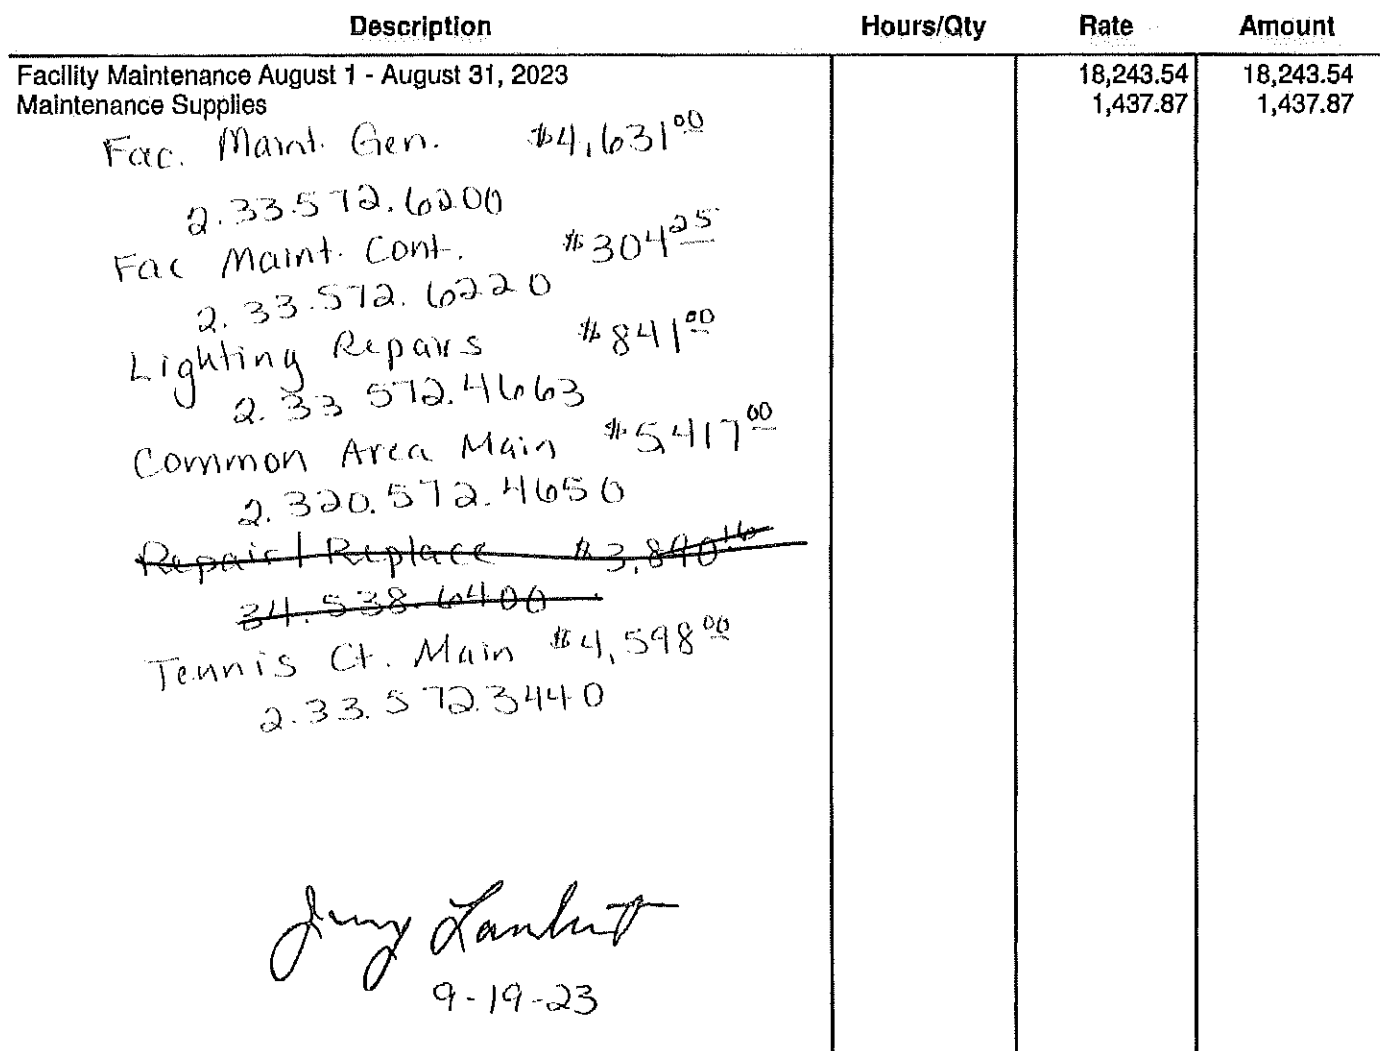 Description Hours/Qty Rate Amount
Facility Maintenance August 1 - August 31, 2023 18,243.54 18,243.54
Maintenance Supplies 1,437.87 1,437.87
Fac. Maint. Gen. $4,631.00
2.33.572.6200
Fac Maint. Cont. $304.25
2.33.572.6220
Lighting Repairs $841.00
2.33 572.4663
Common Area Main $5417.00
2.320.572.4650
Repair/Replace $3,890.16
34.538.6400
Tennis Ct. Main $4,598.00
2.33.572.3440
Jerry Lambert
9-19-23